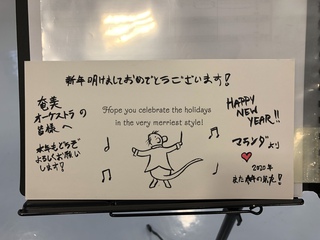 新年明けましておめでとうございます!
奄美
オーケストラの
皆様へ
本年もどうぞ
よろしくお願い
します!
Hope you celebrate the holidays
in the very merriest style!
HAPPY
NEW
YEAR!!
マランダより
2020年
また